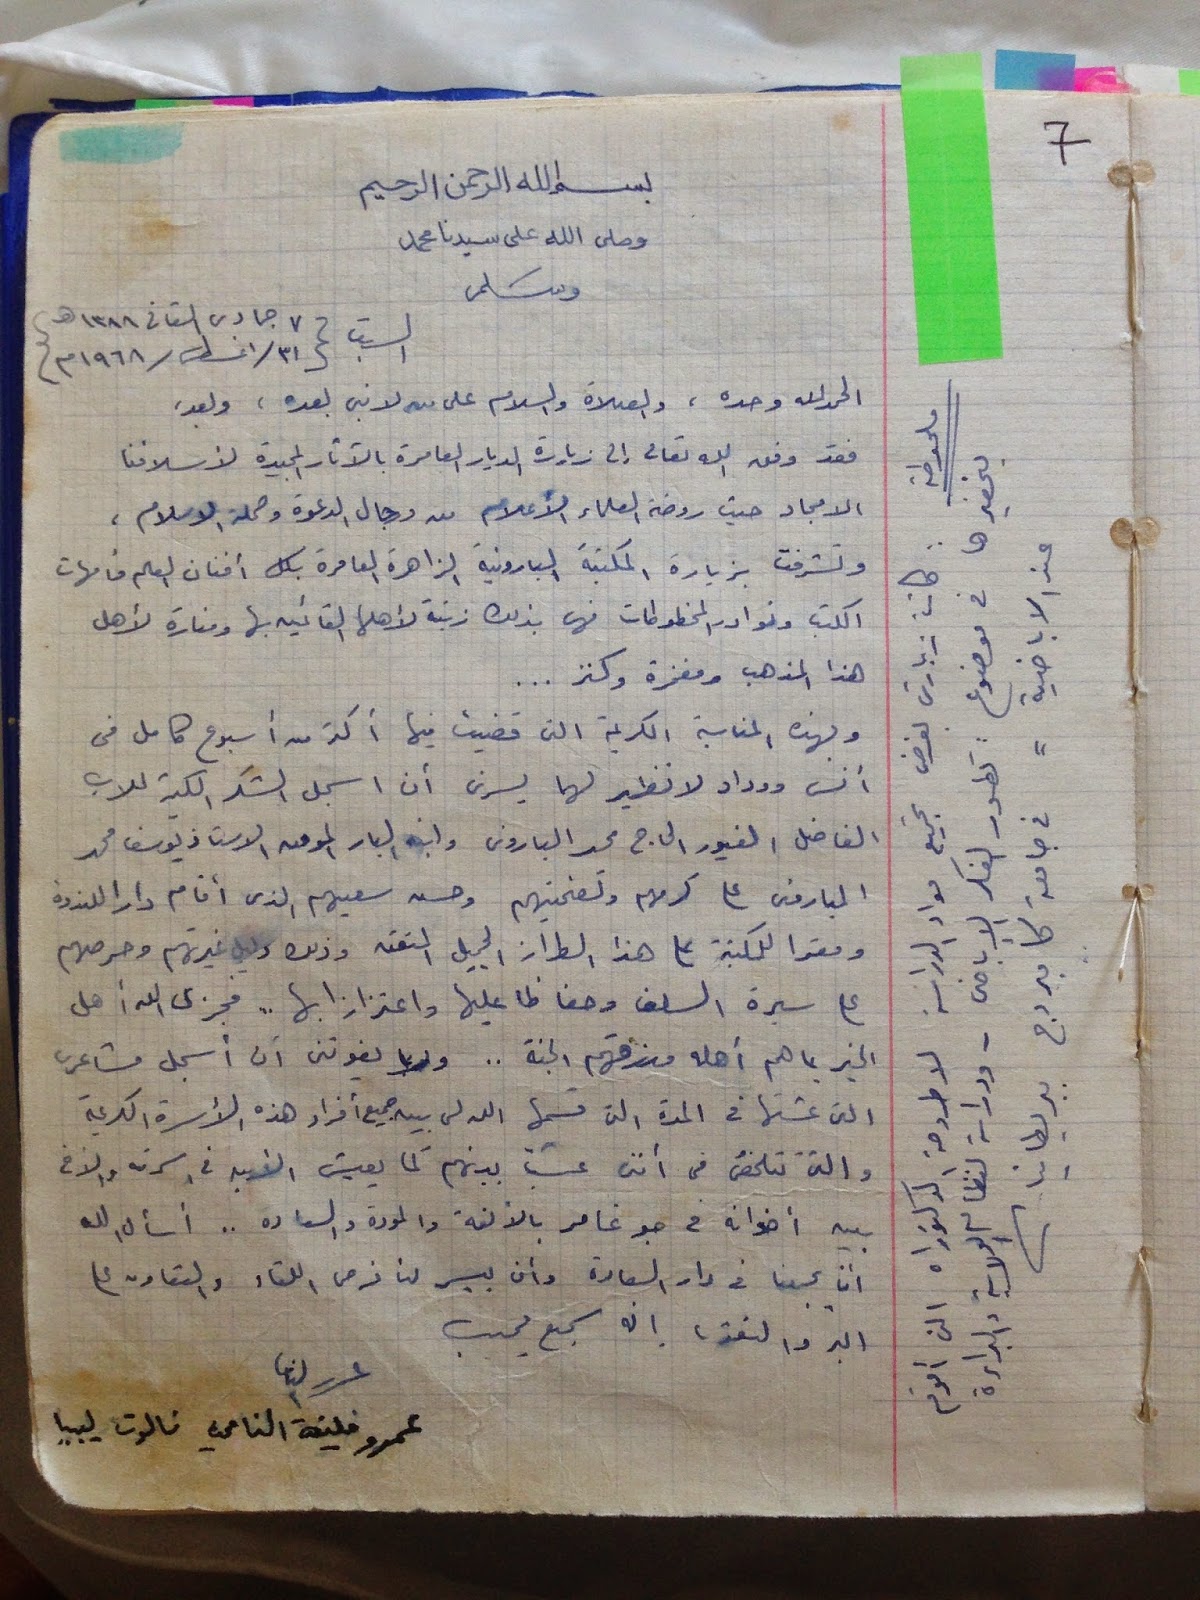 7
بسم الله الرحمن الرحيم
وصلى الله على سيدنا محمد
وسلم
السبت { ٧ جمادى الثاني ١٣٨٨ هـ
٣١/اغسطس/١٩٦٨م }
الحمد لله وحده ، والصلاة والسلام على من لا نبي بعده ، وبعد،
فقد وفق الله تعالى إلى زيارة الديار العامرة بالآثار المجيدة لأسلافنا
الامجاد حيث روضة العلماء الأعلام من رجال الدعوة وحملة الاسلام ،
وتشرفت بزيارة المكتبة البارونية الزاهرة العامرة بكل أفنان العلم وأمهات
الكتب ونوادر المخطوطات فهي بذلك زينة لأهلها القائمين بها ومنارة لأهل
هذا المذهب ومفخرة وكنز ...
وبهذه المناسبة الكريمة التي قضيت فيها أكثر من أسبوع كامل في
أنس ووداد لا نظير لهما يسرني أن اسجل الشكر الكثير للاب
الفاضل الغيور الحاج محمد الباروني وابنه البار الموفق الاستاذ يوسف محمد
الباروني على كرمهم وتضحيتهم وحسن سعيهم الذي أقام دارا للندوة
ومقرا للمكتبة على هذا الطراز الجميل المتقن وذلك دليل غيرتهم وحرصهم
على سيرة السلف وحفاظا عليها واعتزازا بها .. فجزى الله أهل
الخير بما هم أهله ورزقهم الجنة .. ولا يفوتني أن أسجل مشاعري
التي عشتها في المدة التي قسمها الله لي بين جميع أفراد هذه الأسرة الكريمة
والتي تتلخص في أنني عشت بينهم كما يعيش الابن في اسرته والاخ
بين أخوانه في جو غامر بالألفة والمودة والسعادة .. أسأل الله
أن يجمعنا في دار السعادة وأن ييسر لنا فرص اللقاء والتعاون على
البر والتقوى ، إنه سميع مجيب
عمرو خليفة النامي نالوت ليبيا
ملحوظة : كانت زيارتي بغرض تجميع مواد الدراسة لاطروحة الدكتوراه التي أقوم
بتحضيرها في موضوع : تطور الفكر الاباضي - ودراسة لنظام الولاية والبراءة
عند الاباضية " في جامعة كامبردج . بريطانيا